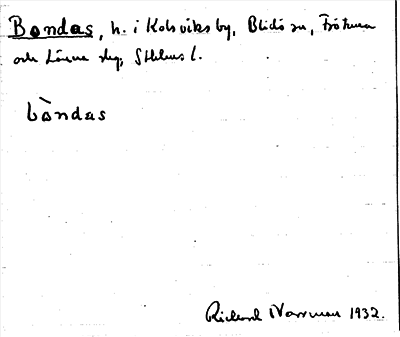 Bondas, h. i Kolsviks by, Blidö sn, Frötuna
och Länna skg, Sthlms l.
bòndas
Rickard Norrman 1932.